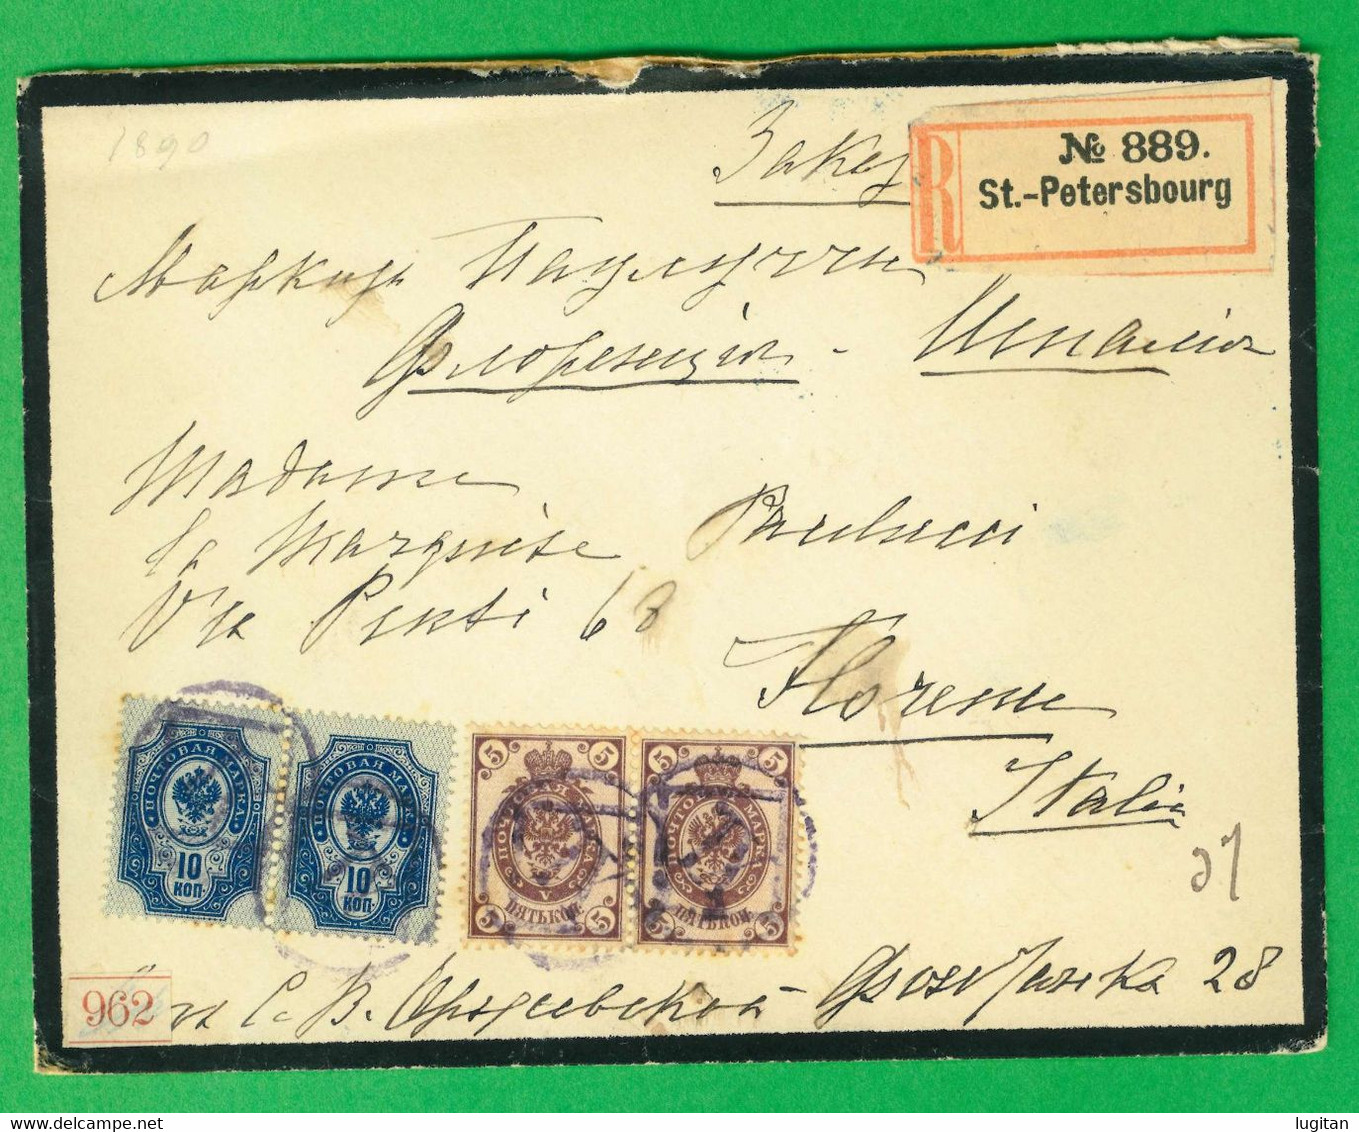 1890
Заказ
R
№ 889.
St.-Petersbourg
Маркизѣ Паулуччи
Флоренція - Италія
Madame
La Marquise Paulucci
Via Ponti 68
Florence
Italie
ПОЧТОВАЯ МАРКА 10 КОП.
ПОЧТОВАЯ МАРКА 10 КОП.
5 5 ПОЧТОВАЯ МАРКА V ПЯТЬ КОП. 5 5
5 5 ПОЧТОВАЯ МАРКА V ПЯТЬ КОП. 5 5
962
От С. В. Оржевской Фонтанка 28
lugitan